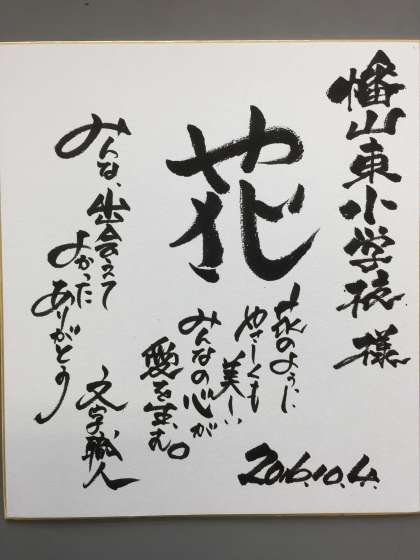 幡山東小学校 様
花
花のように
やさしくも
美しい
みんなの心が
愛を生む。
みんな、出会えて
よかった
ありがとう
文字職人
2016.10.4.